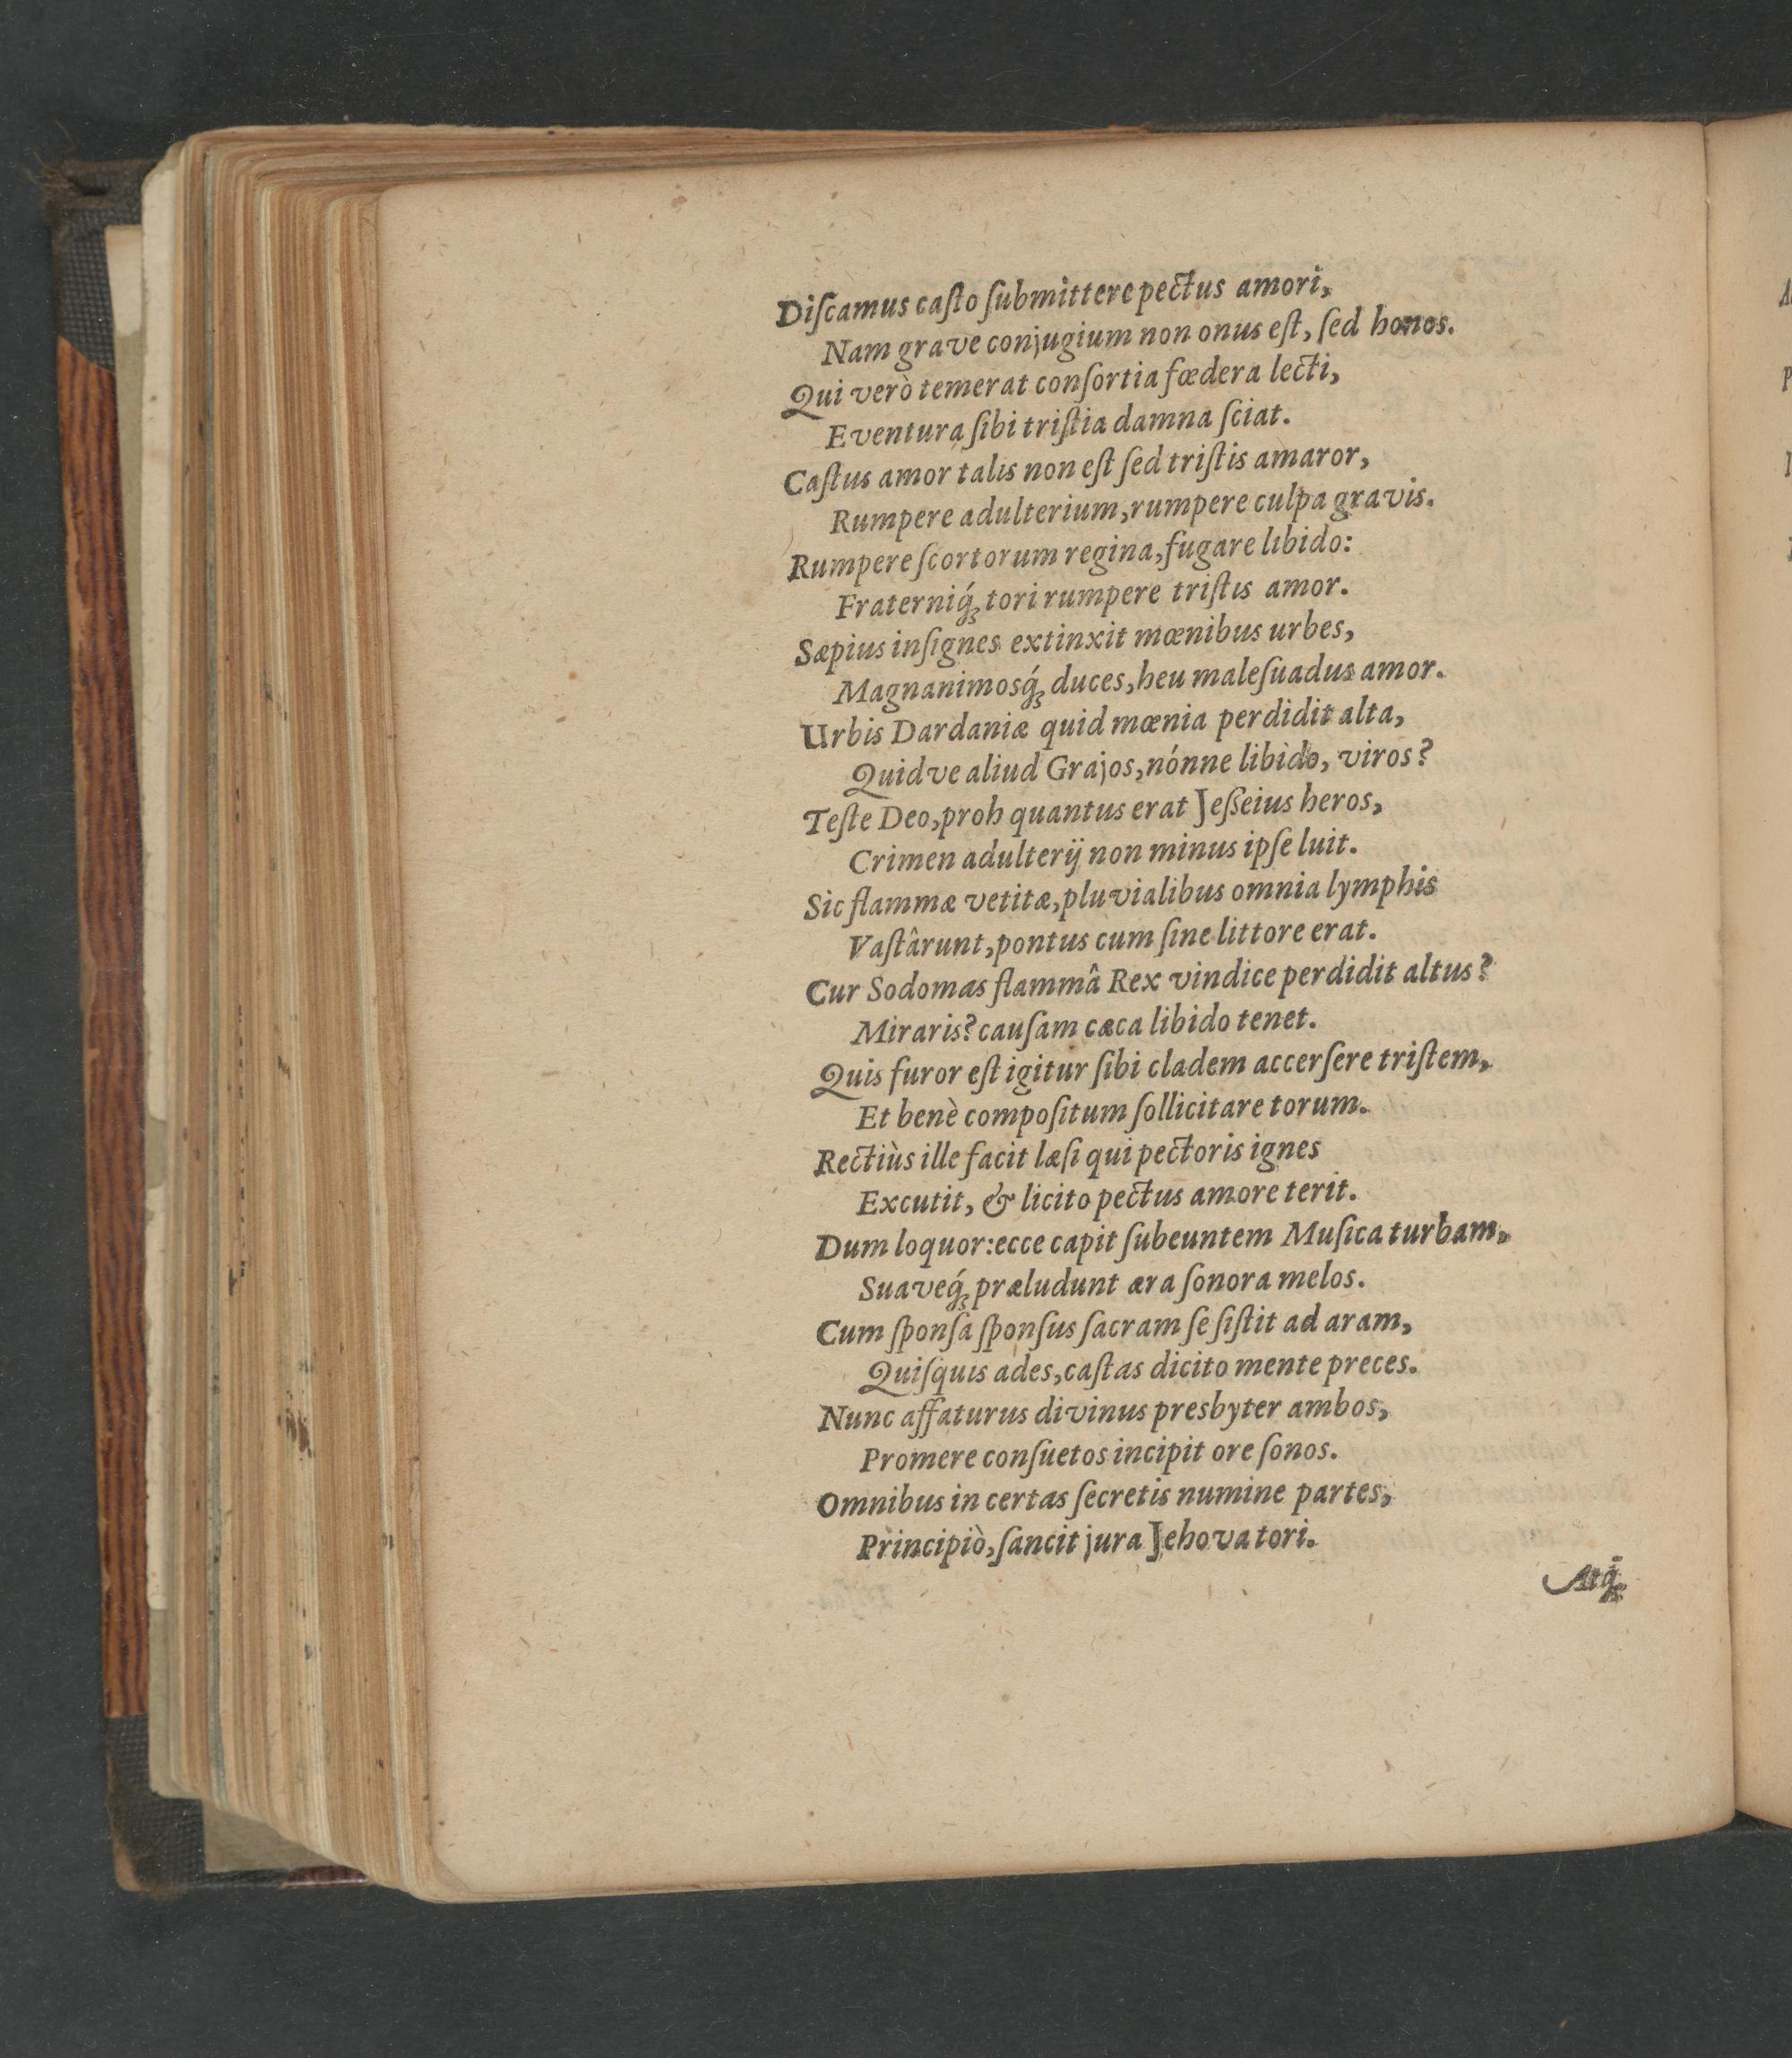 Diſcamus caſto ſubmittere pectus amori,
Nam grave conjugium non onus eſt, ſed honos.
Qui verò temerat conſortia fœdera lecti,
Eventura ſibi triſtia damna ſciat.
Caſtus amor talis non eſt ſed triſtis amaror,
Rumpere adulterium, rumpere culpa gravis.
Rumpere ſcortorum regina, fugare libido:
Fraterniq́ꝫ tori rumpere triſtis amor.
Sæpius inſignes extinxit mœnibus urbes,
Magnanimosq́ꝫ duces, heu maleſuadus amor.
Urbis Dardaniæ quid mœnia perdidit alta,
Quidve aliud Grajos, nónne libido, viros?
Teſte Deo, proh quantus erat Jeſſeius heros,
Crimen adulterij non minus ipſe luit.
Sic flammæ vetitæ, pluvialibus omnia lymphis
Vaſtârunt, pontus cum ſine littore erat.
Cur Sodomas flammâ Rex vindice perdidit altus?
Miraris? cauſam cæca libido tenet.
Quis furor eſt igitur ſibi cladem accerſere triſtem,
Et benè compoſitum ſollicitare torum.
Rectiùs ille facit læſi qui pectoris ignes
Excutit, & licito pectus amore terit.
Dum loquor: ecce capit ſubeuntem Muſica turbam,
Suaveq́ꝫ præludunt æra ſonora melos.
Cum ſponſâ ſponſus ſacram ſe ſiſtit ad aram,
Quiſquis ades, caſtas dicito mente preces.
Nunc affaturus divinus presbyter ambos,
Promere conſuetos incipit ore ſonos.
Omnibus in certas ſecretis numine partes,
Principiò, ſancit jura Jehova tori.
Atq́ꝫ